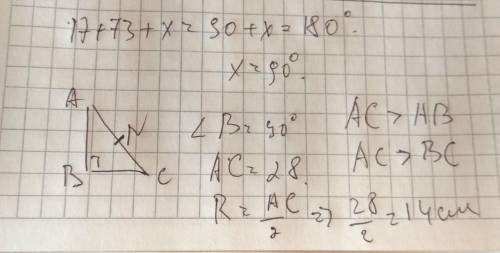 17+73+x=90+x=180°.
x=90°.
A
N
B
C
∠B=90°
AC=28.
R=AC/2 ⇒ 28/2=14см
AC>AB
AC>BC